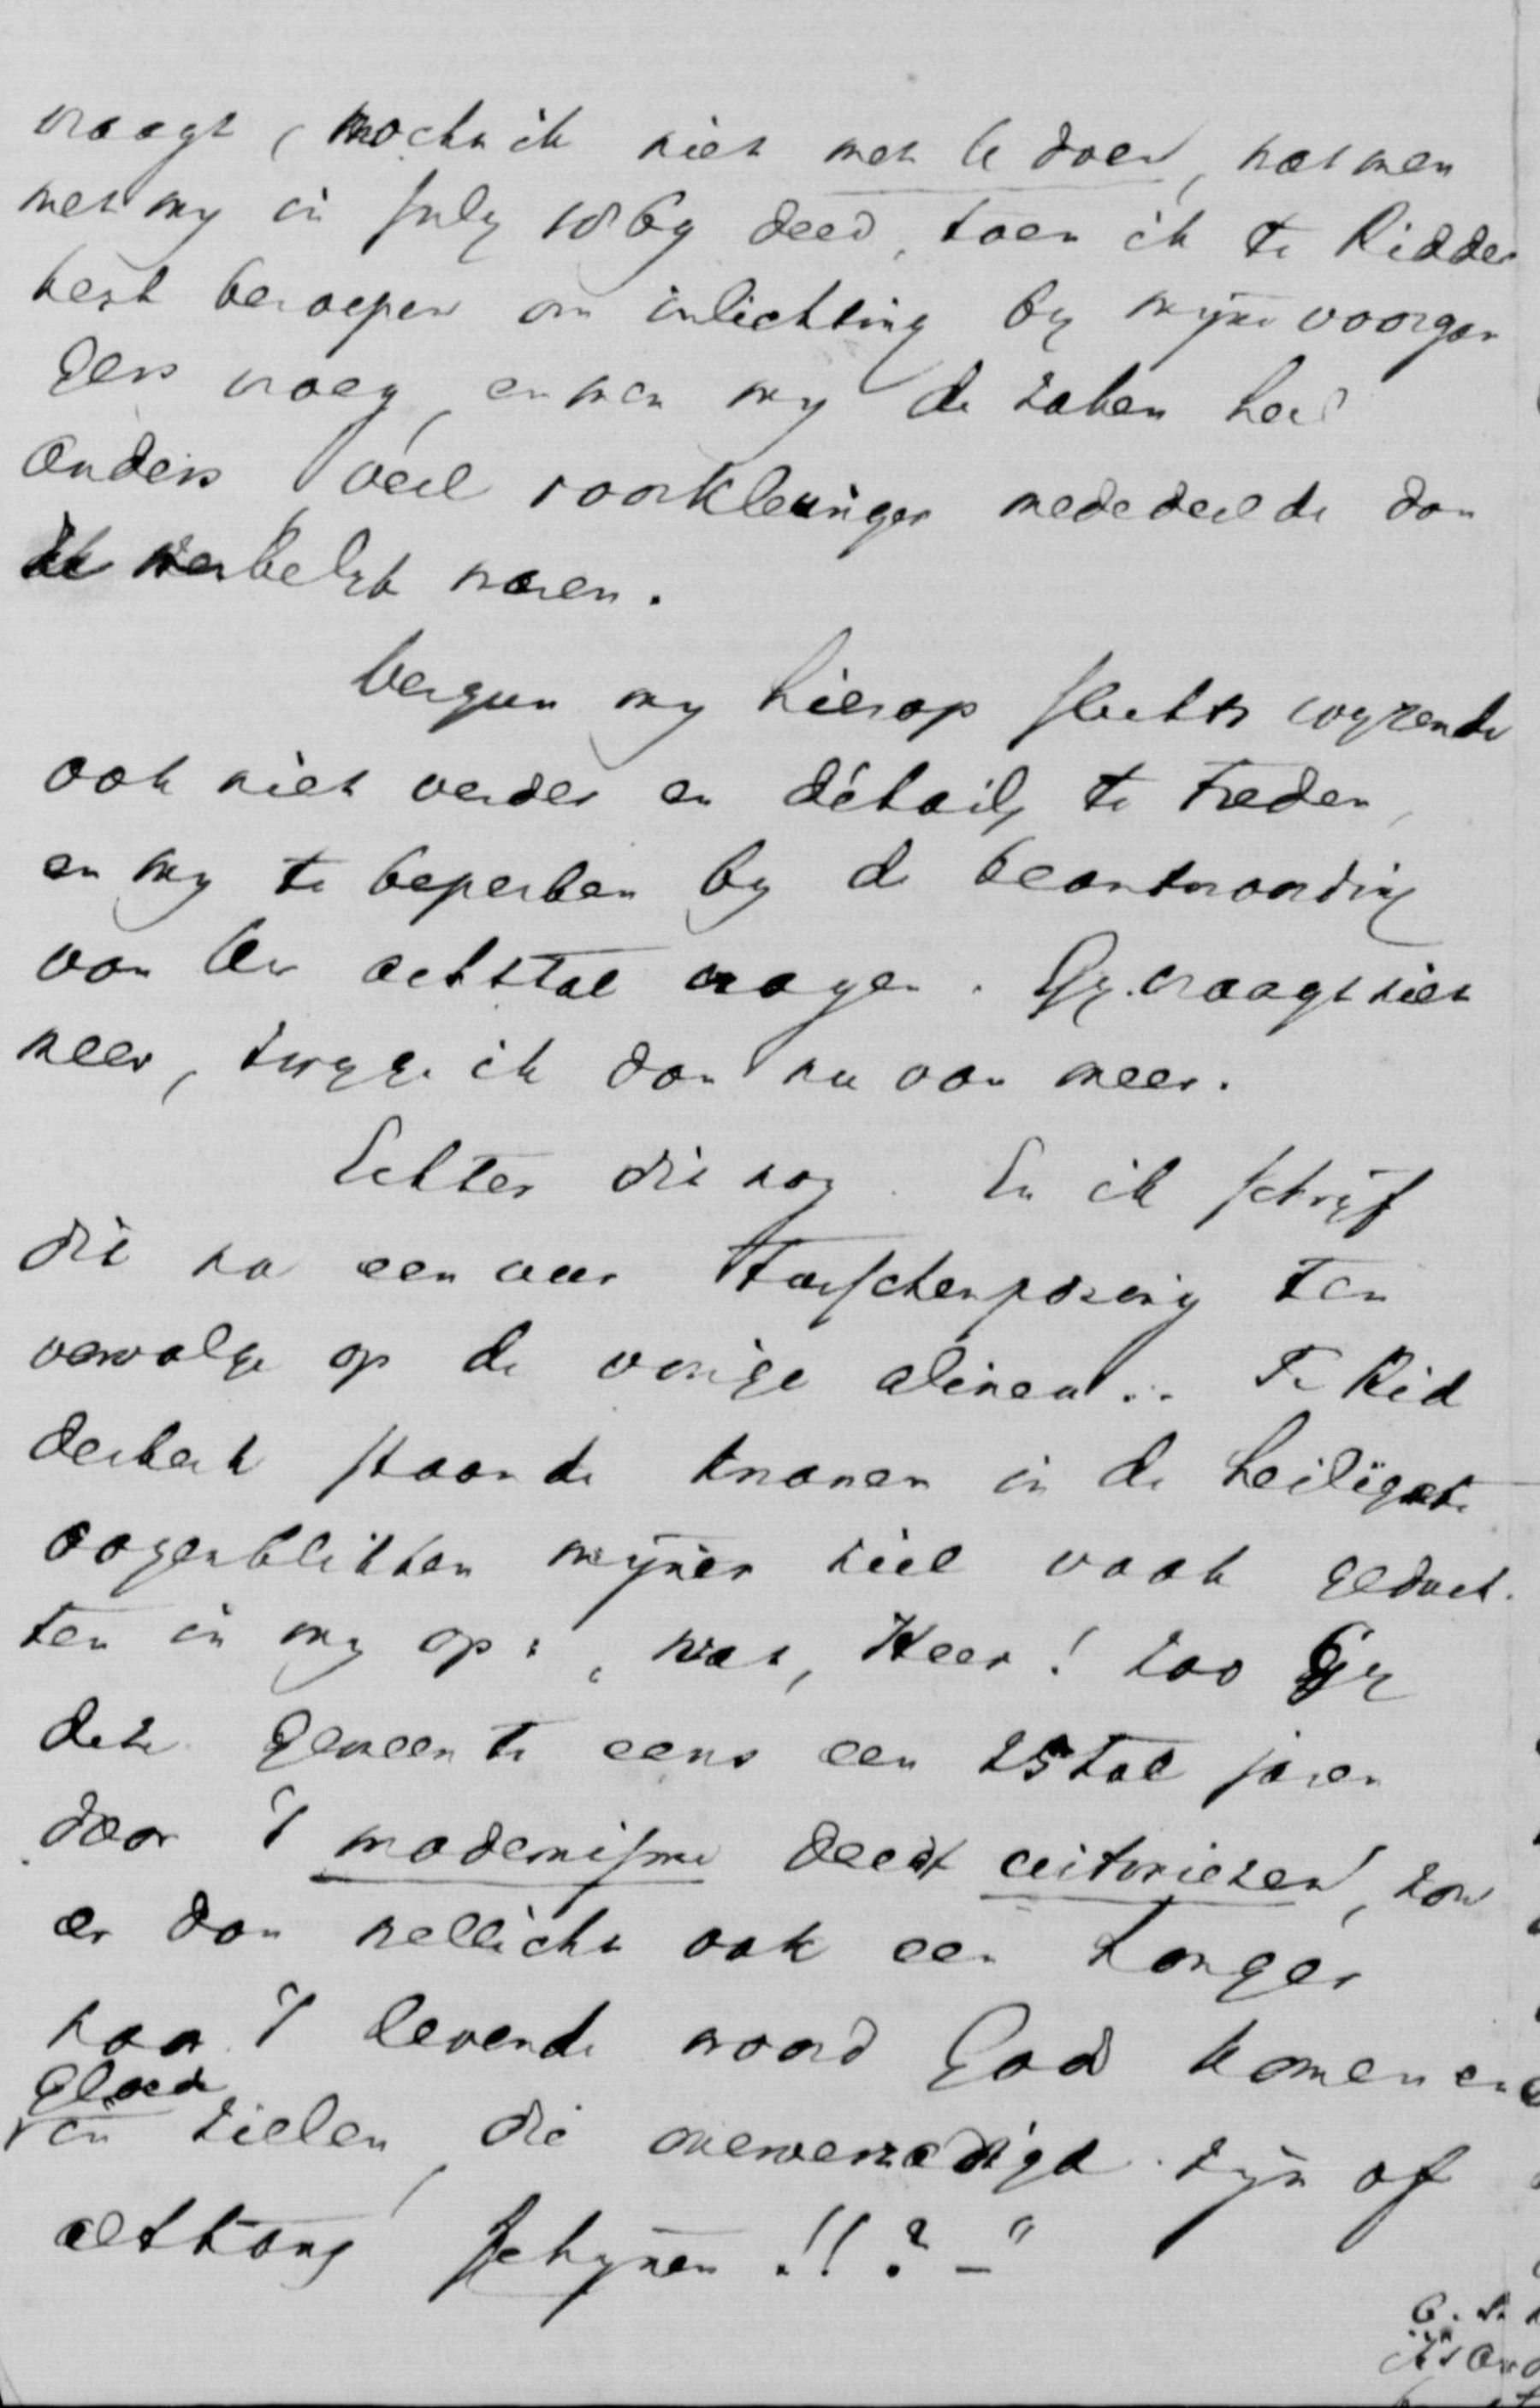 vraagt, mocht ik niet met U doen, wat men
met my in July 1869 deed, toen ik te Ridder
kerk beroepen om inlichting by mijne voorgan
gers vroeg, en men my de zaken heel
anders veel rooskleuriger mededeelde dan
ze werkelyk waren.
Vergun my hierop slechts wyzende
ook niet verder en détails te treden,
en my te beperken by de beantwoording
van Uw achttal vragen. Gy vraagt niet
meer, zwyge ik dan nu van meer.
Echter dit nog. En ik schrijf
dit na een uur tusschenpozing ten
vervolge op de vorige alinea... Te Rid
derkerk staande kwamen in de heiligste
oogenblikken mijner ziel vaak gedach-
ten in my op: „wat, Heer! zoo Gy
deze gemeente eens een 25tal jaren
door 't modernisme deedt uitvriezen, zou
er dan wellicht ook een honger
naar 't levende woord God komen en
gloed
in zielen, die onverzadigd zijn of
althans schynen!!? –"